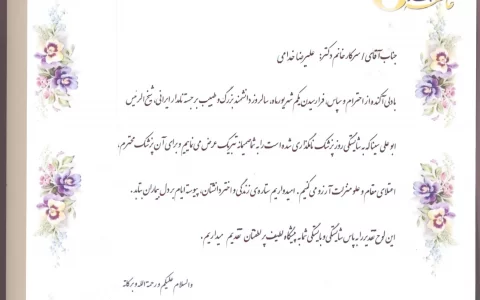 جناب آقای / سرکار خانم دکتر: علیرضا خدامی
با دلی آکنده از احترام و سپاس، فرارسیدن یکم شهریورماه، سالروز دانشمند بزرگ و طبیب برجسته نامدار ایرانی، شیخ الرئیس
ابوعلی سینا که به شایستگی روز پزشک نامگذاری شده است را به شما صمیمانه تبریک عرض می نماییم و برای آن پزشک محترم،
اعتلای مقام و علو منزلت آرزو می کنیم. امید داریم ستاره ی زندگی و اختر دانشتان، پیوسته ایام بر دل بیماران بتابد.
این لوح تقدیر را به پاس شایستگی و بایستگی شما به پیشگاه لطیف پر لطفتان تقدیم میداریم.
والسلام علیکم و رحمة الله و برکاته